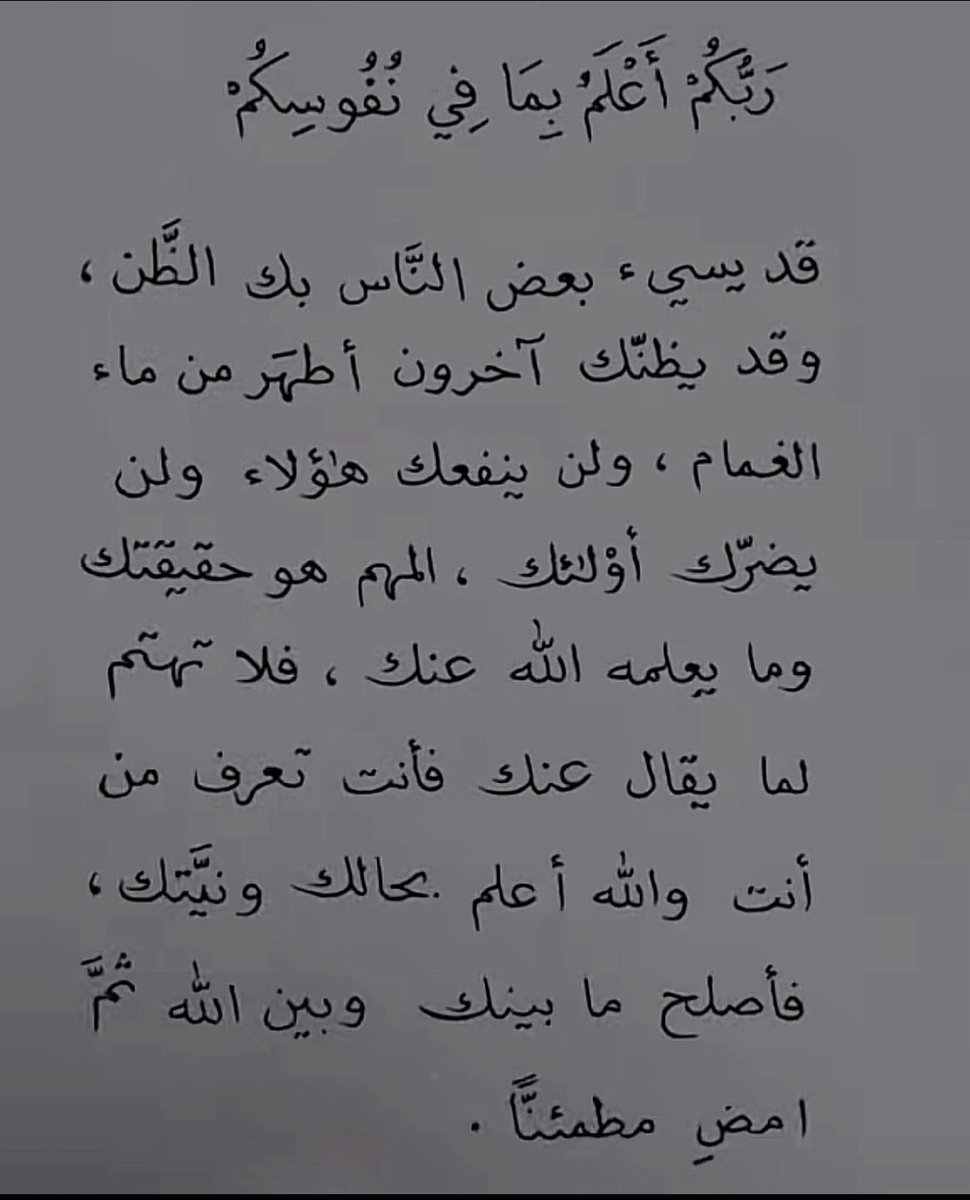 رَبُّكُمْ أَعْلَمُ بِمَا فِي نُفُوسِكُمْ
قد يسيء بعض النَّاس بك الظَّن ،
وقد يظنّك آخرون أطهَر من ماء
الغمام ، ولن ينفعك هؤلاء ولن
يضرّك أوْلئك ، المهم هو حقيقتك
وما يعلمه الله عنك ، فلا تهتم
لما يقال عنك فأنت تعرف من
أنت والله أعلم بحالك ونيَّتك ،
فأصلح ما بينك وبين الله ثمَّ
امضِ مطمئنًّا .